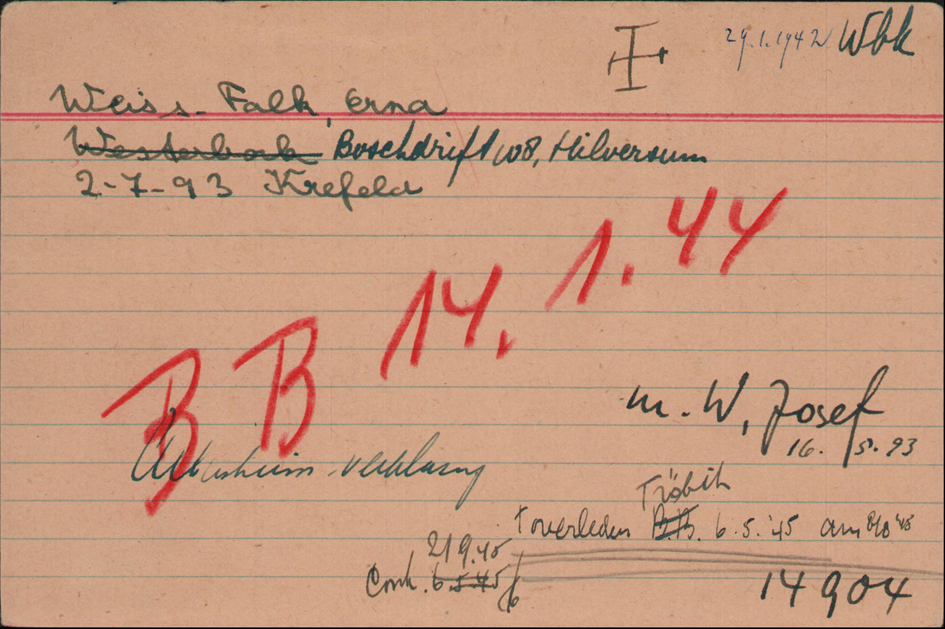 29.1.1942 Wbk
Weiss-Falk, Erna
Westerbork Boschdrift 108, Hilversum
2-7-93 Krefeld
BB 14.1.44
m. W, Josef
16. 5. 93
verklaring
Tröbitz
overleden B.B. 6.5.'45
21 9.45
Conh. 6.5.45
14904